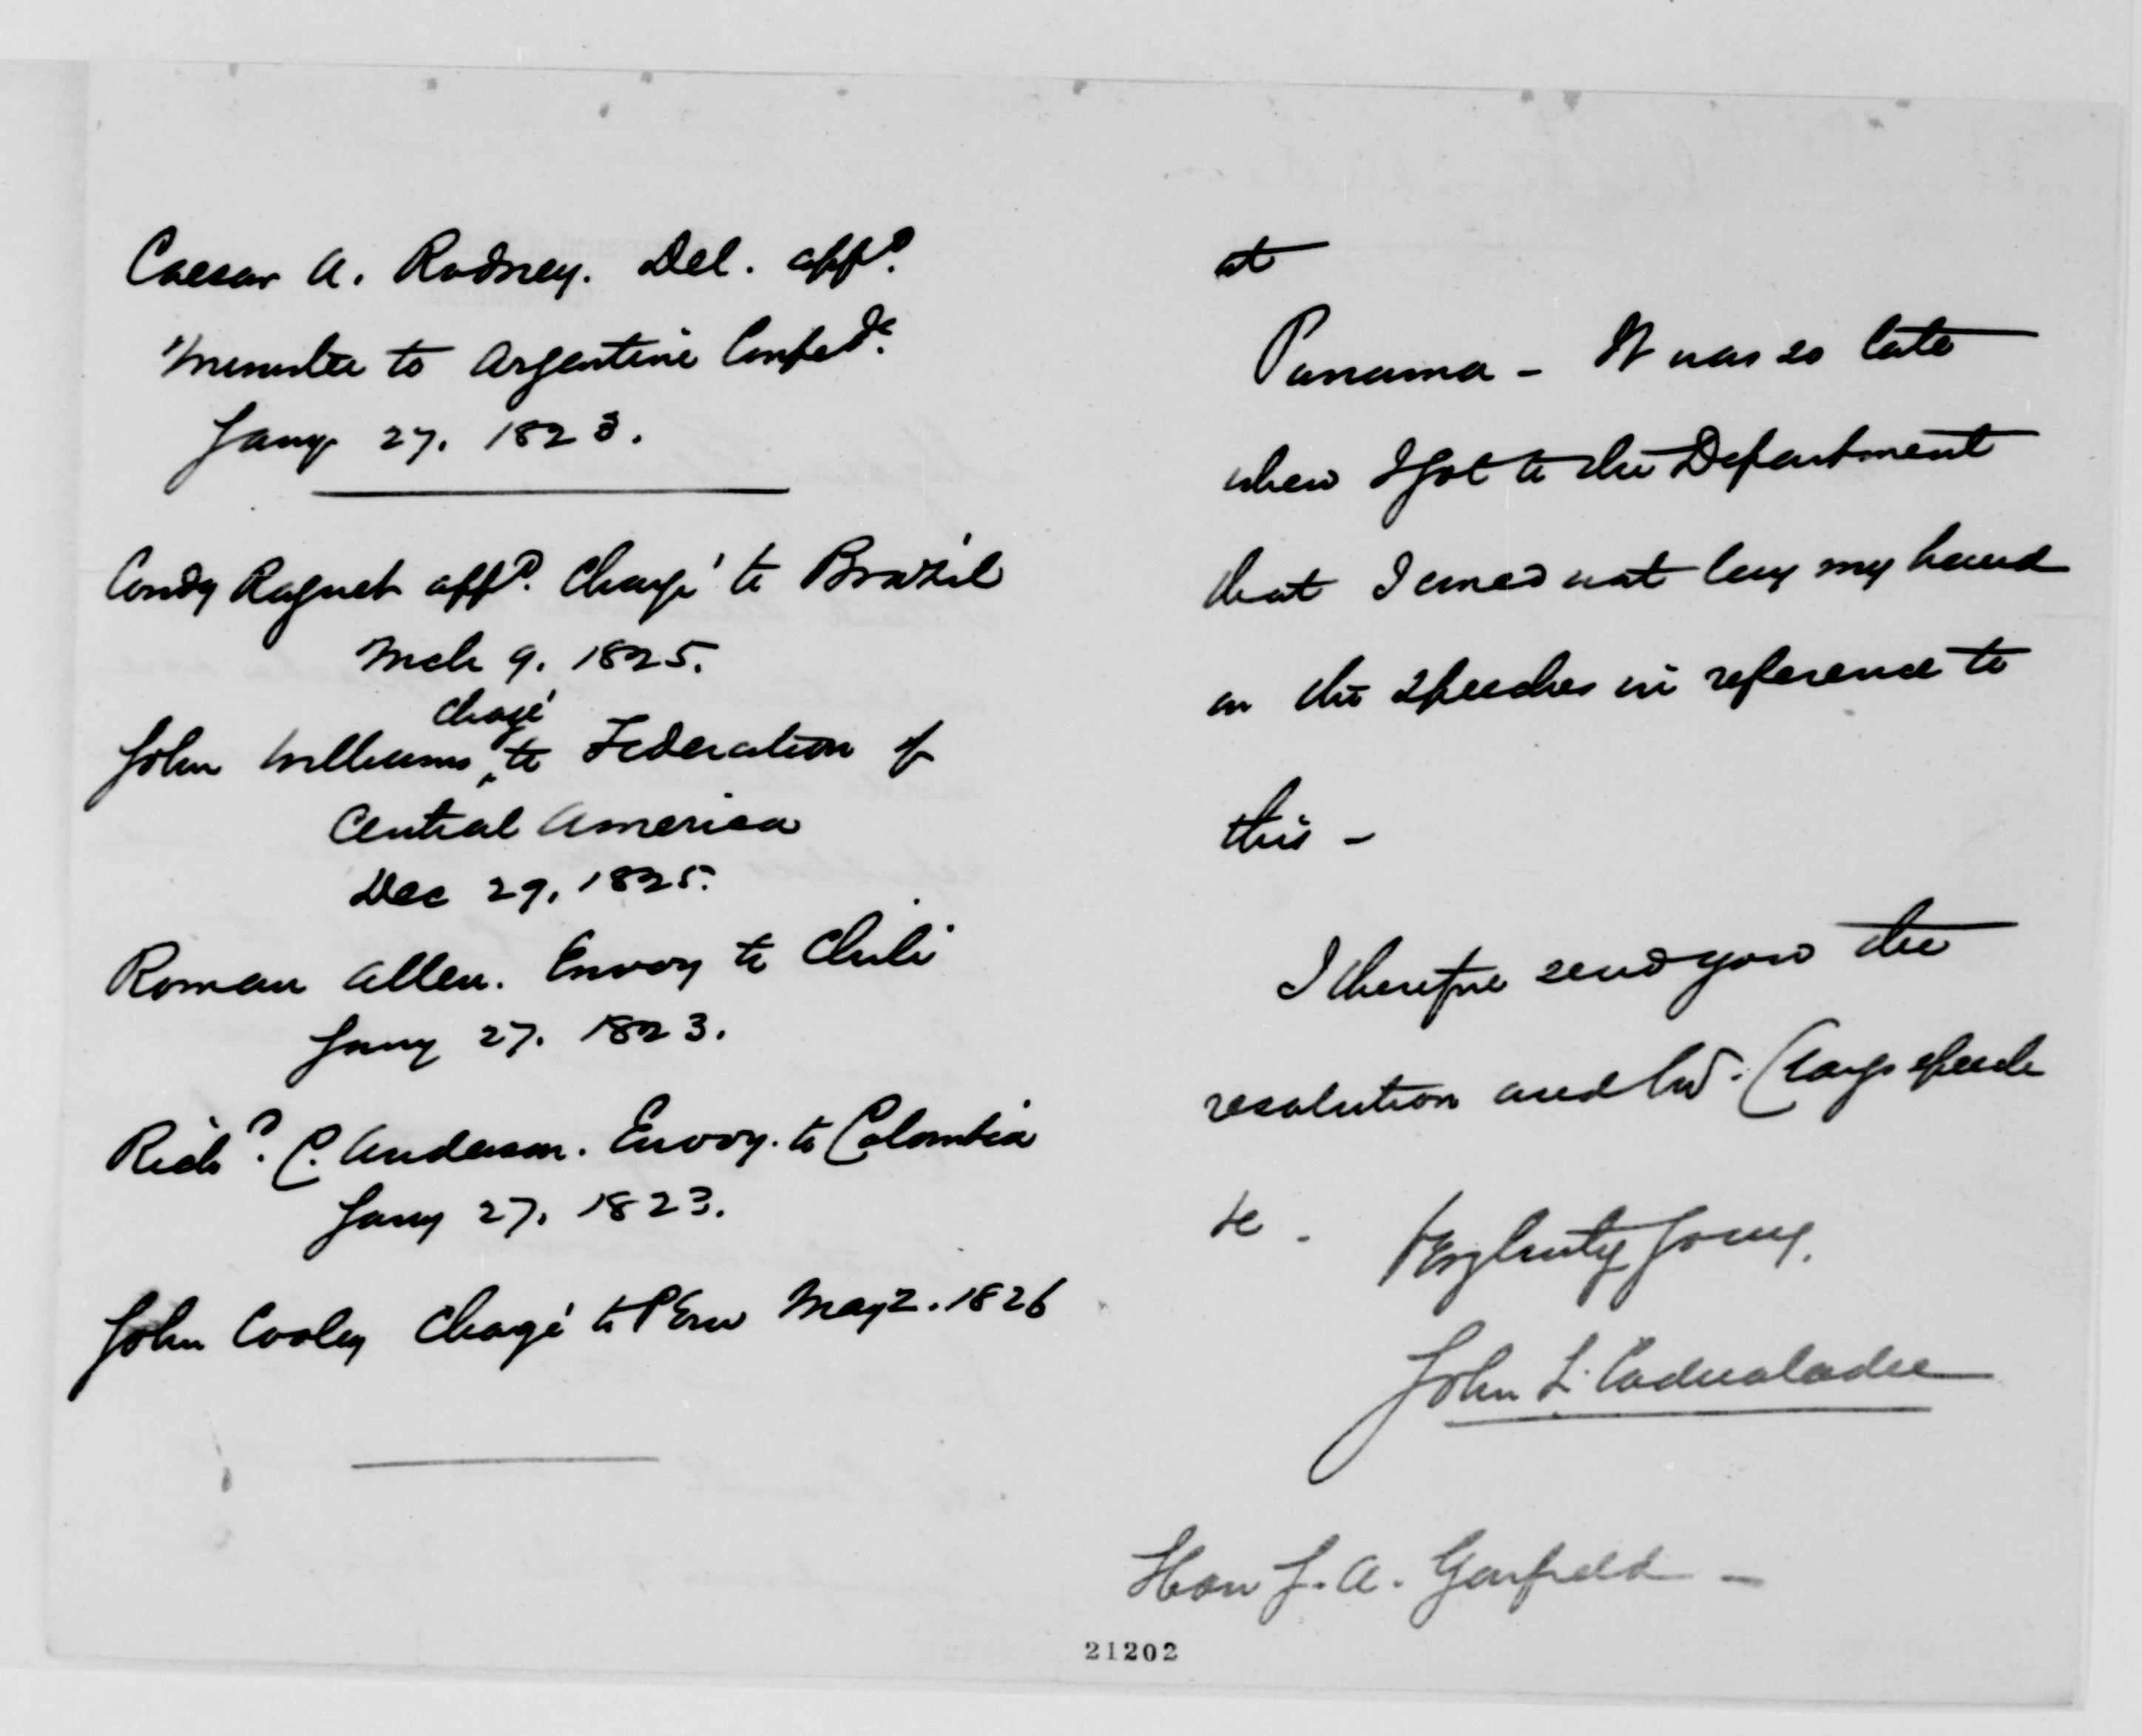 Caesar A. Rodney. Del. appd.
Minister to Argentine Confedc.
Jany 27. 1823.
Condy Raguet appd. Chargé to Brazil
Mch 9. 1825.
Chagé
John Williams ‸ to Federation of
Central America
Dec 29, 1825.
Roman Allen. Envoy to Chili
Jany 27. 1823.
Richd. C. Anderson. Envoy. to Colombia
Jany 27, 1823.
John Cooley Chagé to Peru May 2. 1826
at
Panama - It was so late
when I got to the Department
that I could not lay my hand
on the speeches in reference to
this -
I therefore send you the
resolution and Mr. Clays speech
&c -
Truly yours,
John L. Cadwalader
Hon J. A. Garfield -
21202